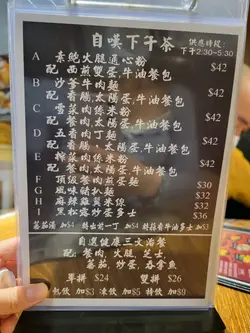 自嘆下午茶
供應時段:
下午2:30-5:30
A 素絻火腿通心粉
配 西煎雙蛋,牛油餐包 $42
B 沙爹牛肉麵
配 香腸,太陽蛋,牛油餐包 $42
C 雪菜肉絲米粉
配 餐肉,太陽蛋,牛油餐包 $42
D 五香肉丁麵
配 香腸,太陽蛋,牛油餐包 $42
E 榨菜肉絲米粉
配 餐肉,太陽蛋,牛油餐包 $42
F 頂級餐肉蛋麵 $30
G 風味豬扒麵 $32
H 麻辣麵 $36
I 黑松露炒蛋多士 $32
蕃茄湯 加$4 轉出前一丁 加$4 牛油多士 加$3
自選健康三文治餐
配:餐肉,火腿,芝士,
蕃茄,炒蛋,吞拿魚
單拼 $24 雙拼 $26
扎飲 加$3 凍飲 加$5 特飲 加$9